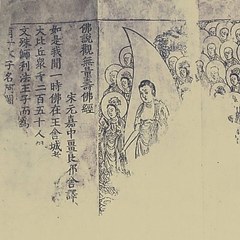 佛說觀無量壽佛經
宋元嘉中畺良耶舍譯
如是我聞一時佛在王舍城耆
大比丘衆千二百五十人
文殊師利法王子而爲
子名阿闍